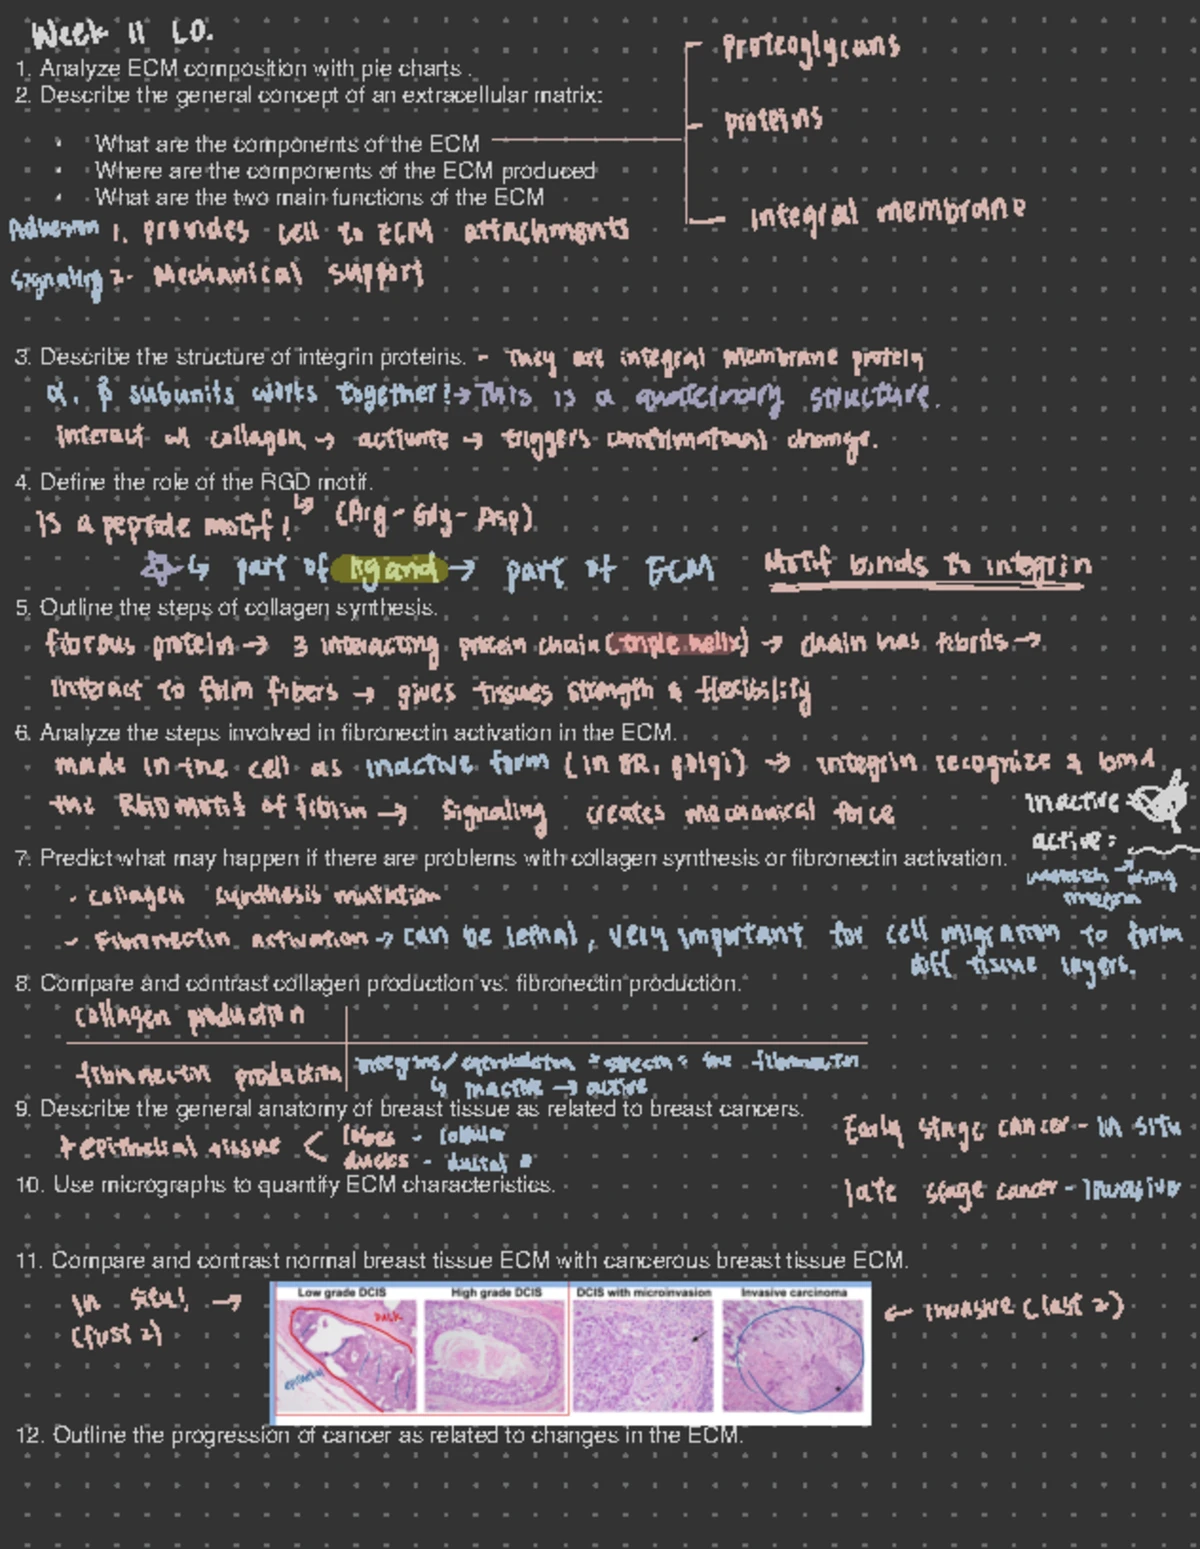 Week 11 LO.
1. Analyze ECM composition with pie charts.
2. Describe the general concept of an extracellular matrix:
• What are the components of the ECM
Proteoglycans
proteins
integral membrane
• Where are the components of the ECM produced
• What are the two main functions of the ECM
Adhesion 1. provides cell to ECM attachments
Signaling 2. Mechanical support
3. Describe the structure of integrin proteins. - They are integral membrane protein
α, β subunits works together! → This is a quaternary structure.
interact w/ collagen → activate → triggers change.
4. Define the role of the RGD motif.
↳ (Arg - Gly - Asp)
Is a peptide motif!
☆ ↳ part of ligand → part of ECM
Motif binds to integrin
5. Outline the steps of collagen synthesis.
fibrous protein → 3 interacting protein chain (triple helix) → chain has fibrils →
interact to form fibers → gives tissues strength & flexibility
6. Analyze the steps involved in fibronectin activation in the ECM.
made in the cell as inactive form (in ER, golgi) → integrin recognize & bind
the RGD motifs of → signaling creates mechanical force
inactive
active:
7. Predict what may happen if there are problems with collagen synthesis or fibronectin activation.
• collagen synthesis mutation
- Fibronectin activation → can be lethal, very important for cell migration to form
diff tissue layers.
8. Compare and contrast collagen production vs. fibronectin production.
collagen production
fibronectin production
integrins/ the fibronectin
↳ inactive → active
9. Describe the general anatomy of breast tissue as related to breast cancers.
epithelial tissue < lobes -
ducks - ductal
Early stage cancer - in situ
late stage cancer - invasive
10. Use micrographs to quantify ECM characteristics.
11. Compare and contrast normal breast tissue ECM with cancerous breast tissue ECM.
in situ! →
(first 2)
Low grade DCIS
High grade DCIS
DCIS with microinvasion
Invasive carcinoma
← invasive (last 2)
12. Outline the progression of cancer as related to changes in the ECM.